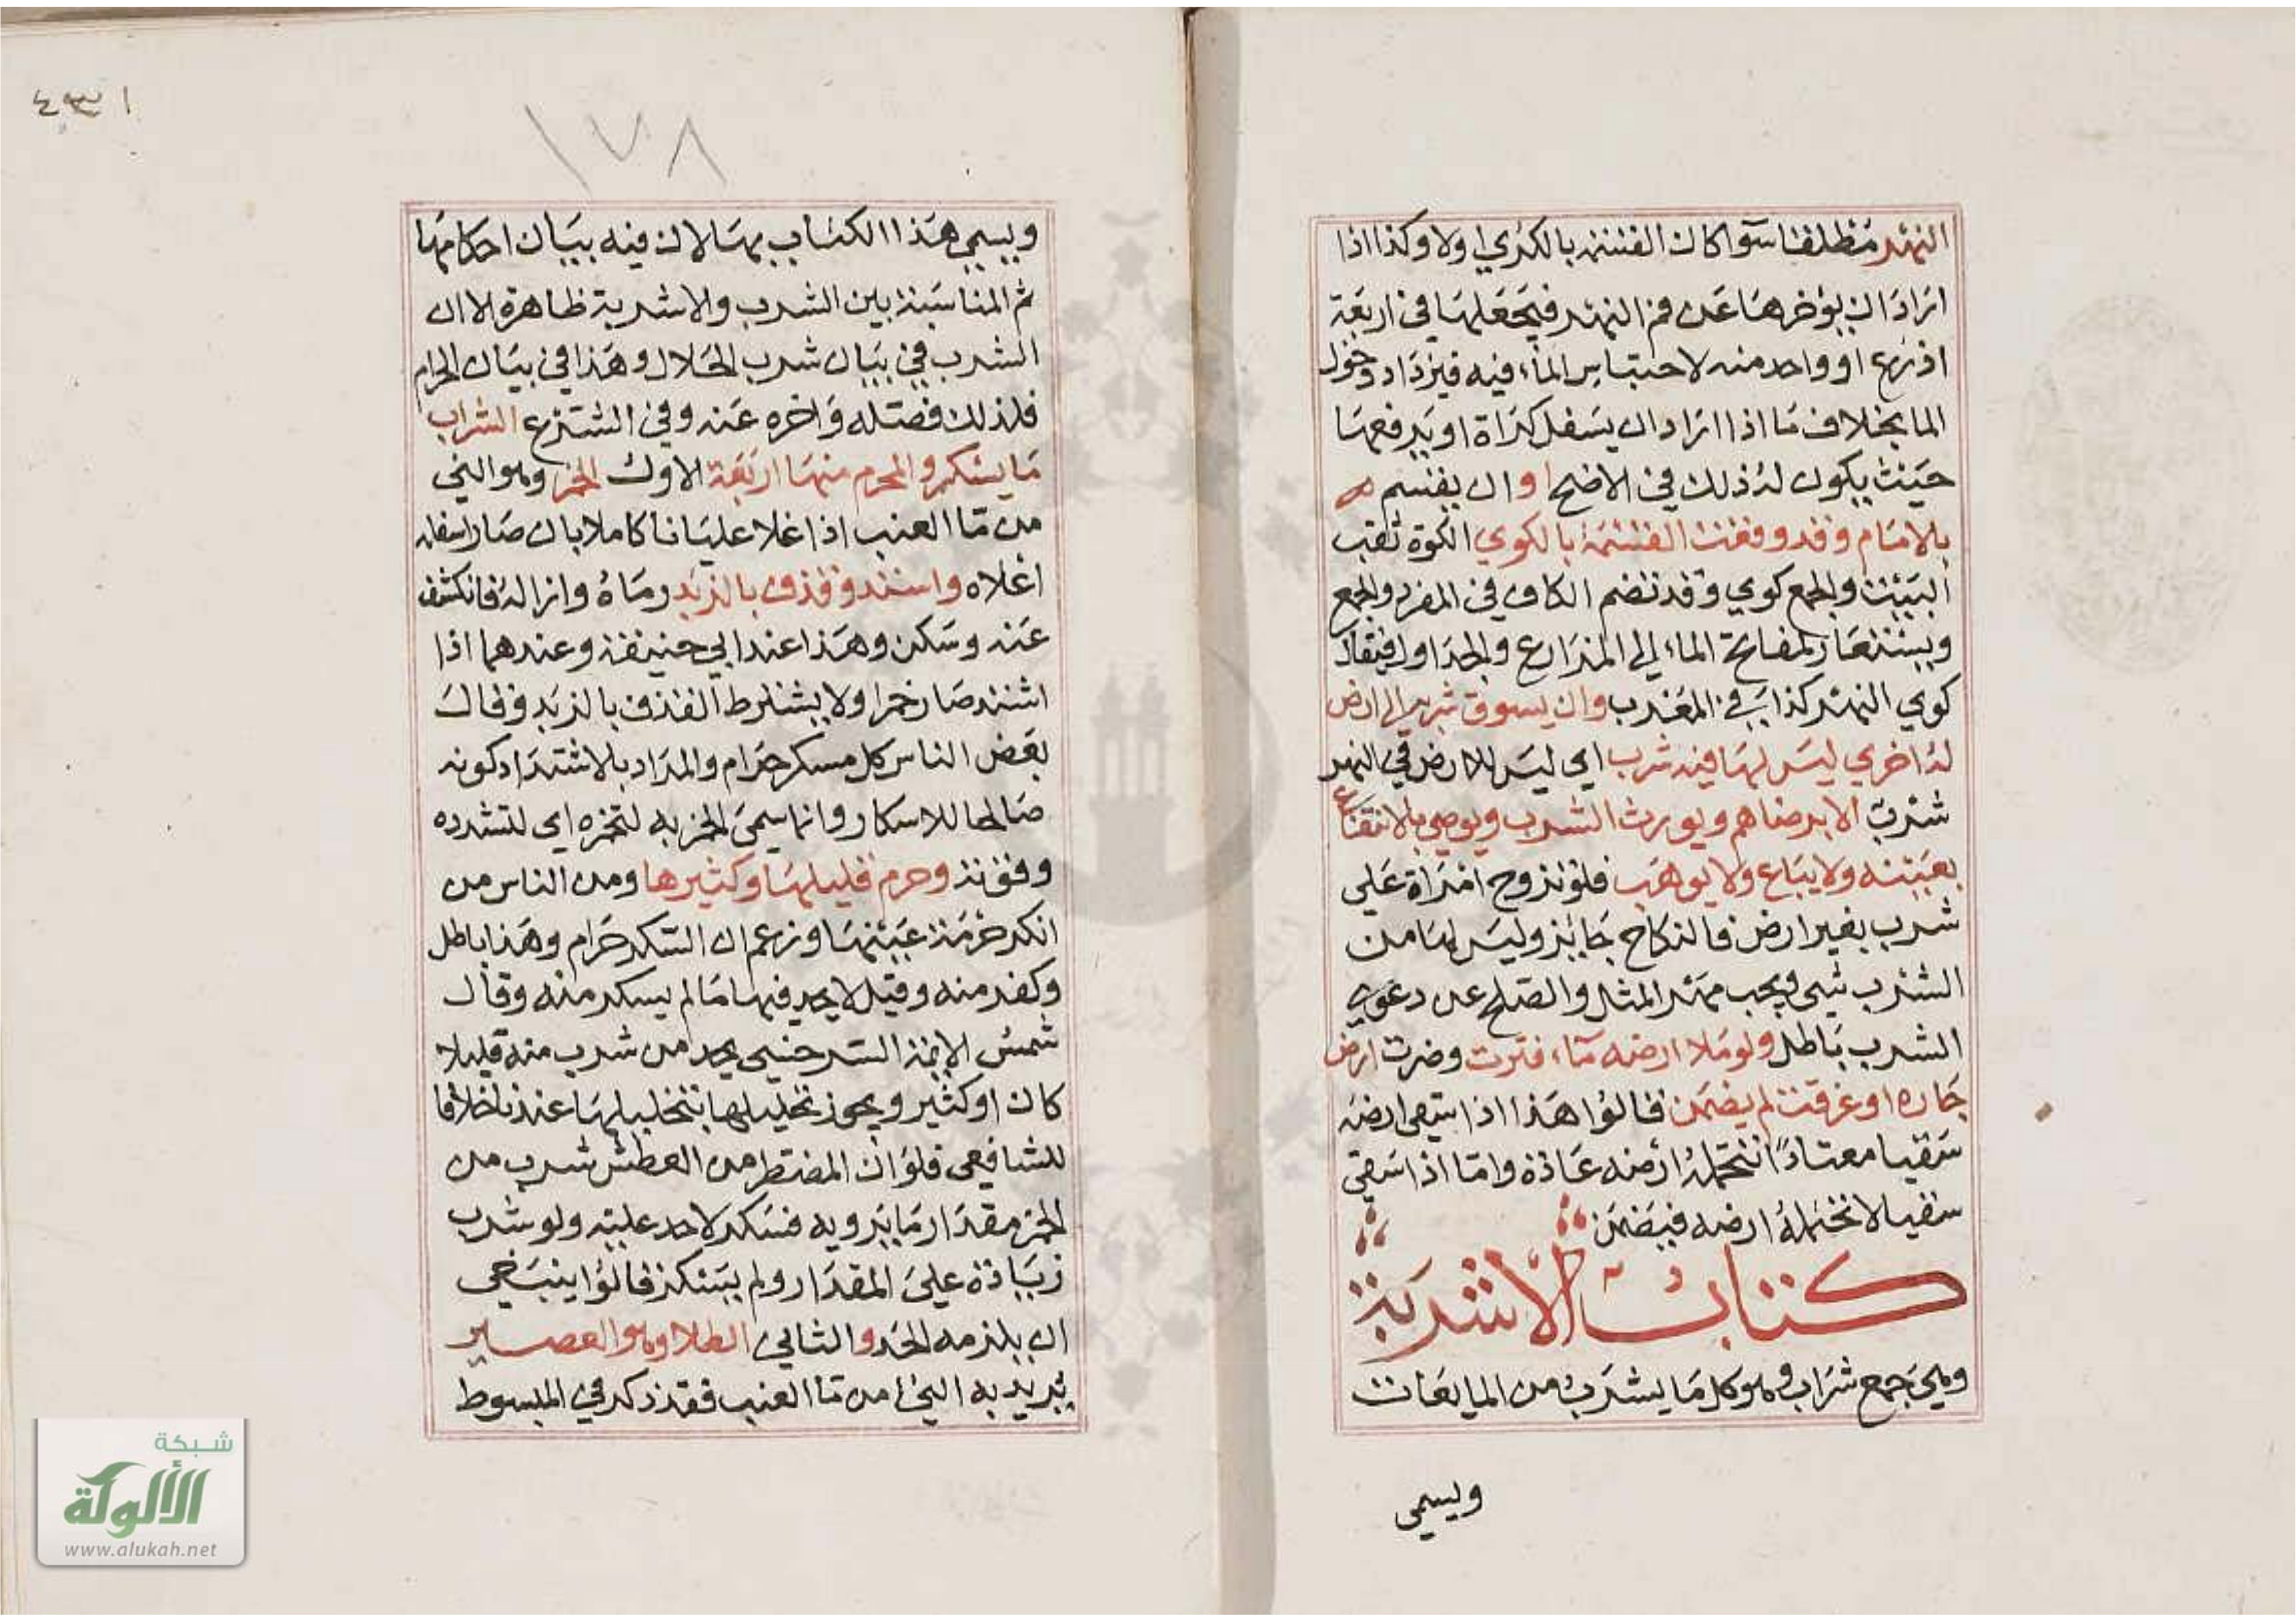 النهر مطلقا سوا كان القسمة بالكوي اولا وكذا اذا
اراد ان يؤخرها عن فم النهر فيجعلها في اربعة
اذرع او واحد منه لاحتباس الماء فيه فيزداد دخول
الما بخلاف ما اذا اراد ان يسفل كواة او يرفعها
حيث يكون له ذلك في الاصح او ان يقسم
بالامام وقد وقعت القسمة بالكوي الكوة ثقب
البيت والجمع كوي وقد تضم الكاف في المفرد والجمع
ويستعار لمفاتح الماء الي المزارع والجداول فيقال
كوي النهر كذا في المغرب وان يسوق شربه الي ارض
له اخري ليس لها فيه شرب اي ليس للارض في النهر
شرب الا برضاهم ويورث الشرب ويوصي بالانتفاع
بعينه ولا يباع ولا يوهب فلو تزوج امراة علي
شرب بغير ارض فالنكاح جائز وليس لها من
الشرب شي ويجب مهر المثل والصلح عن دعوي
الشرب باطل ولو ملا ارضه ماء فنزت وضرت ارض
جاره او غرقت لم يضمن قالوا هذا اذا سقي ارضه
سقيا معتادا تتحمله ارضه عادة واما اذا سقي
سقيا لا تتحمله ارضه فيضمن
كتاب الاشربة
وهي جمع شراب وهو كل ما يشرب من المايعات
ويسمي
٤٣١
١٧٨
ويسمي هذا الكتاب بها لان فيه بيان احكامها
ثم المناسبة بين الشرب والاشربة ظاهرة الا ان
الشرب في بيان شرب الحلال وهذا في بيان الحرام
فلذلك فصله واخره عنه وفي الشرع الشراب
ما يسكر والمحرم منها اربعة الاول الخمر وهو الني
من ما العنب اذا غلا غليانا كاملا بان صار اسفله
اعلاه واشتد وقذف بالزبد رماه وازاله فانكشف
عنه وسكن وهذا عند ابي حنيفة وعندهما اذا
اشتد صار خمرا ولا يشترط القذف بالزبد وقال
بعض الناس كل مسكر حرام والمراد بالاشتداد كونه
صالحا للاسكار وانما سمي الخمر به لتخمره اي لتشدده
وقوته وحرم قليلها وكثيرها ومن الناس من
انكر حرمة عينها وزعم ان السكر حرام وهذا باطل
وكفر منه وقيل لا يحد فيها ما لم يسكر منه وقال
شمس الائمة السرخسي يحد من شرب منه قليلا
كان او كثير ويجوز تخليلها بتخليلها عندنا خلافا
للشافعي فلو ان المضطر من العطش شرب من
الخمر مقدار ما يرويه فسكر لا حد عليه ولو شرب
زيادة علي المقدار ولم يسكر قالوا ينبغي
ان يلزمه الحد والثاني الطلا وهو العصير
يريد به الني من ما العنب فقد ذكر في المبسوط
شبكة
الألوكة
www.alukah.net